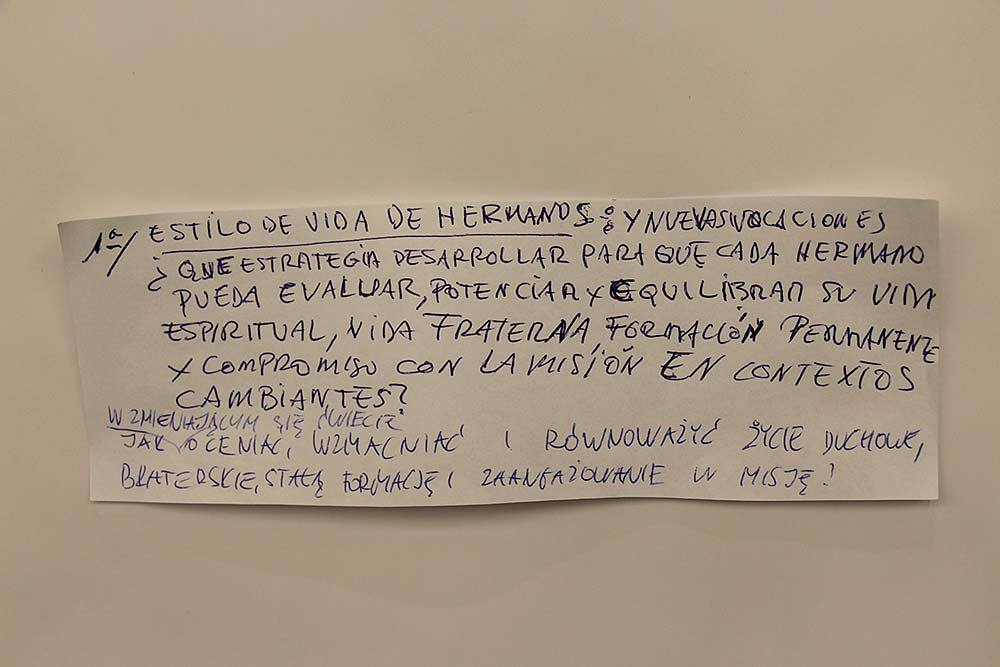 1ª/ ESTILO DE VIDA DE HERMANOS: Y NUEVAS VOCACIONES
¿QUE ESTRATEGIA DESARROLLAR PARA QUE CADA HERMANO
PUEDA EVALUAR, POTENCIAR Y EQUILIBRAR SU VIDA
ESPIRITUAL, VIDA FRATERNA, FORMACIÓN PERMANENTE
Y COMPROMISO CON LA MISIÓN EN CONTEXTOS
CAMBIANTES?
W ZMIENIAJĄCYM SIĘ ŚWIECIE
JAK OCENIAĆ, WZMACNIAĆ I RÓWNOWAŻYĆ ŻYCIE DUCHOWE,
BRATERSKIE, STAŁĄ FORMACJĘ I ZAANGAŻOWANIE W MISJĘ?